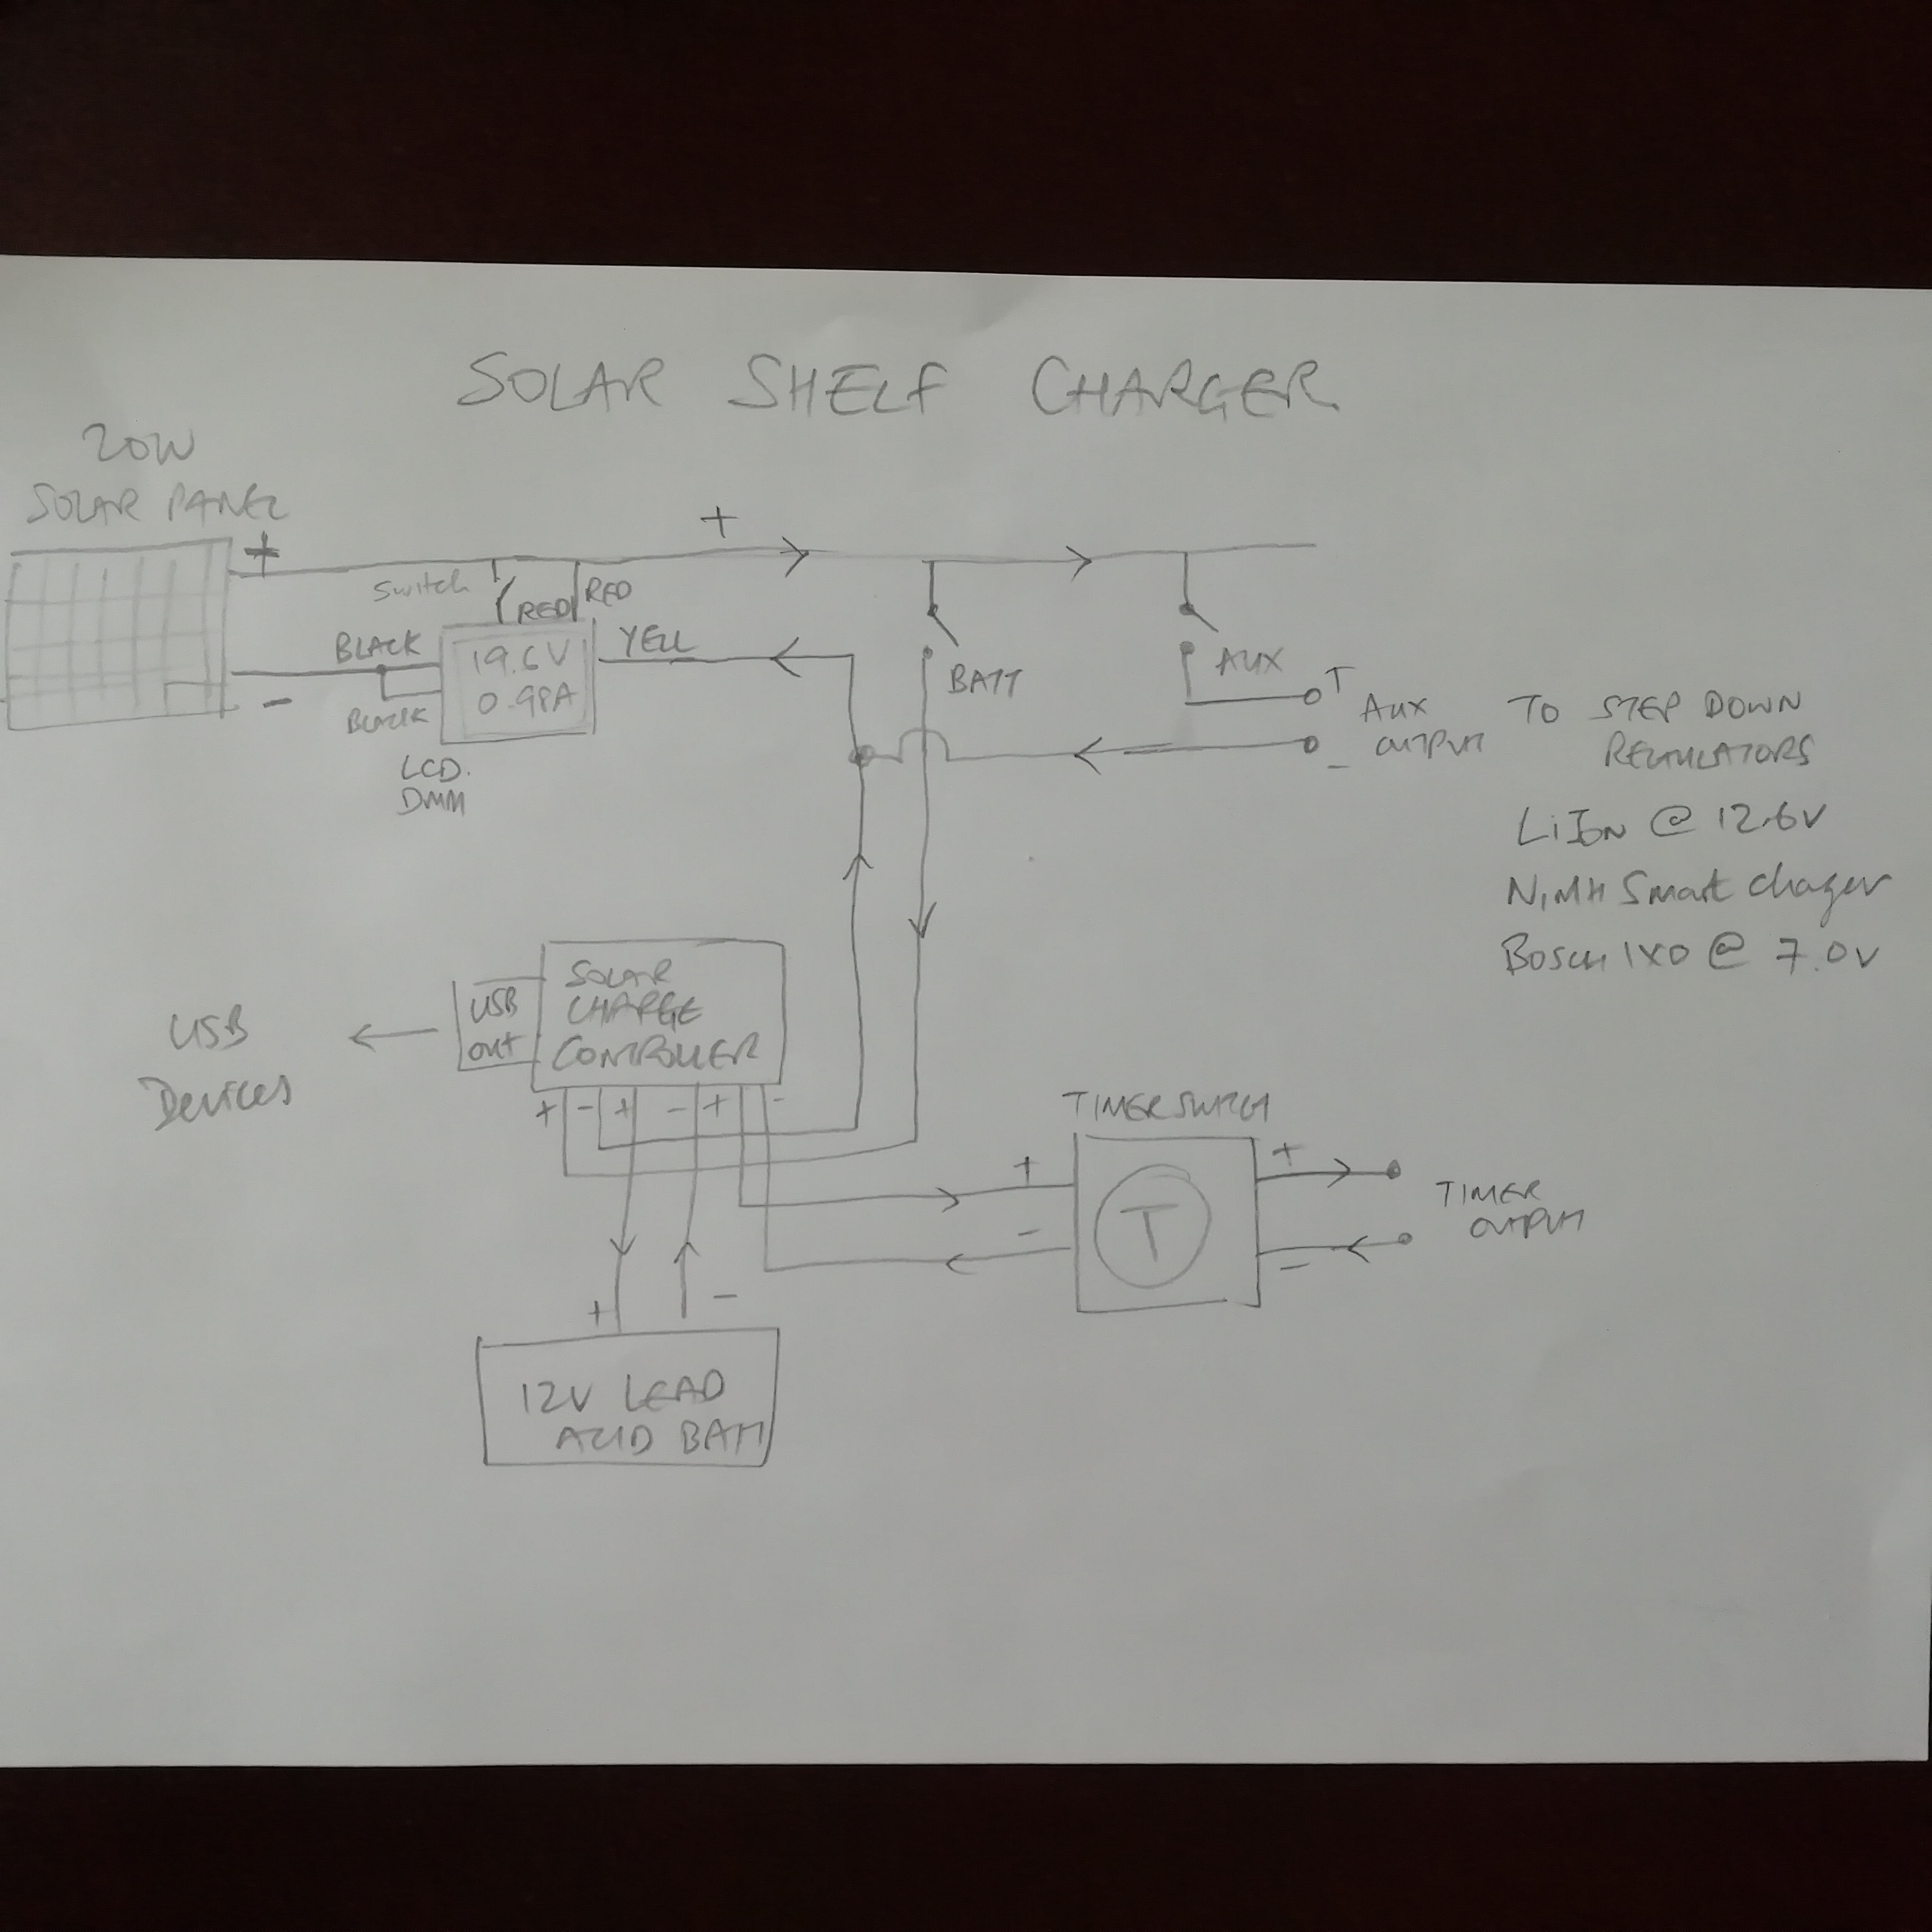 SOLAR SHELF CHARGER
20W
SOLAR PANEL
+
+
Switch
RED
RED
BLACK
19.6V
0.98A
YELL
-
BLACK
LCD.
DMM
BATT
AUX
+
AUX
OUTPUT
-
TO STEP DOWN
REGULATORS
LiIon @ 12.6V
NiMH Smart chager
Bosch IXO @ 7.0V
USB
Devices
USB
out
SOLAR
CHARGE
CONTROLLER
+ - + - + -
TIMER SWITCH
+
-
T
+
-
TIMER
OUTPUT
+
-
12V LEAD
ACID BATT